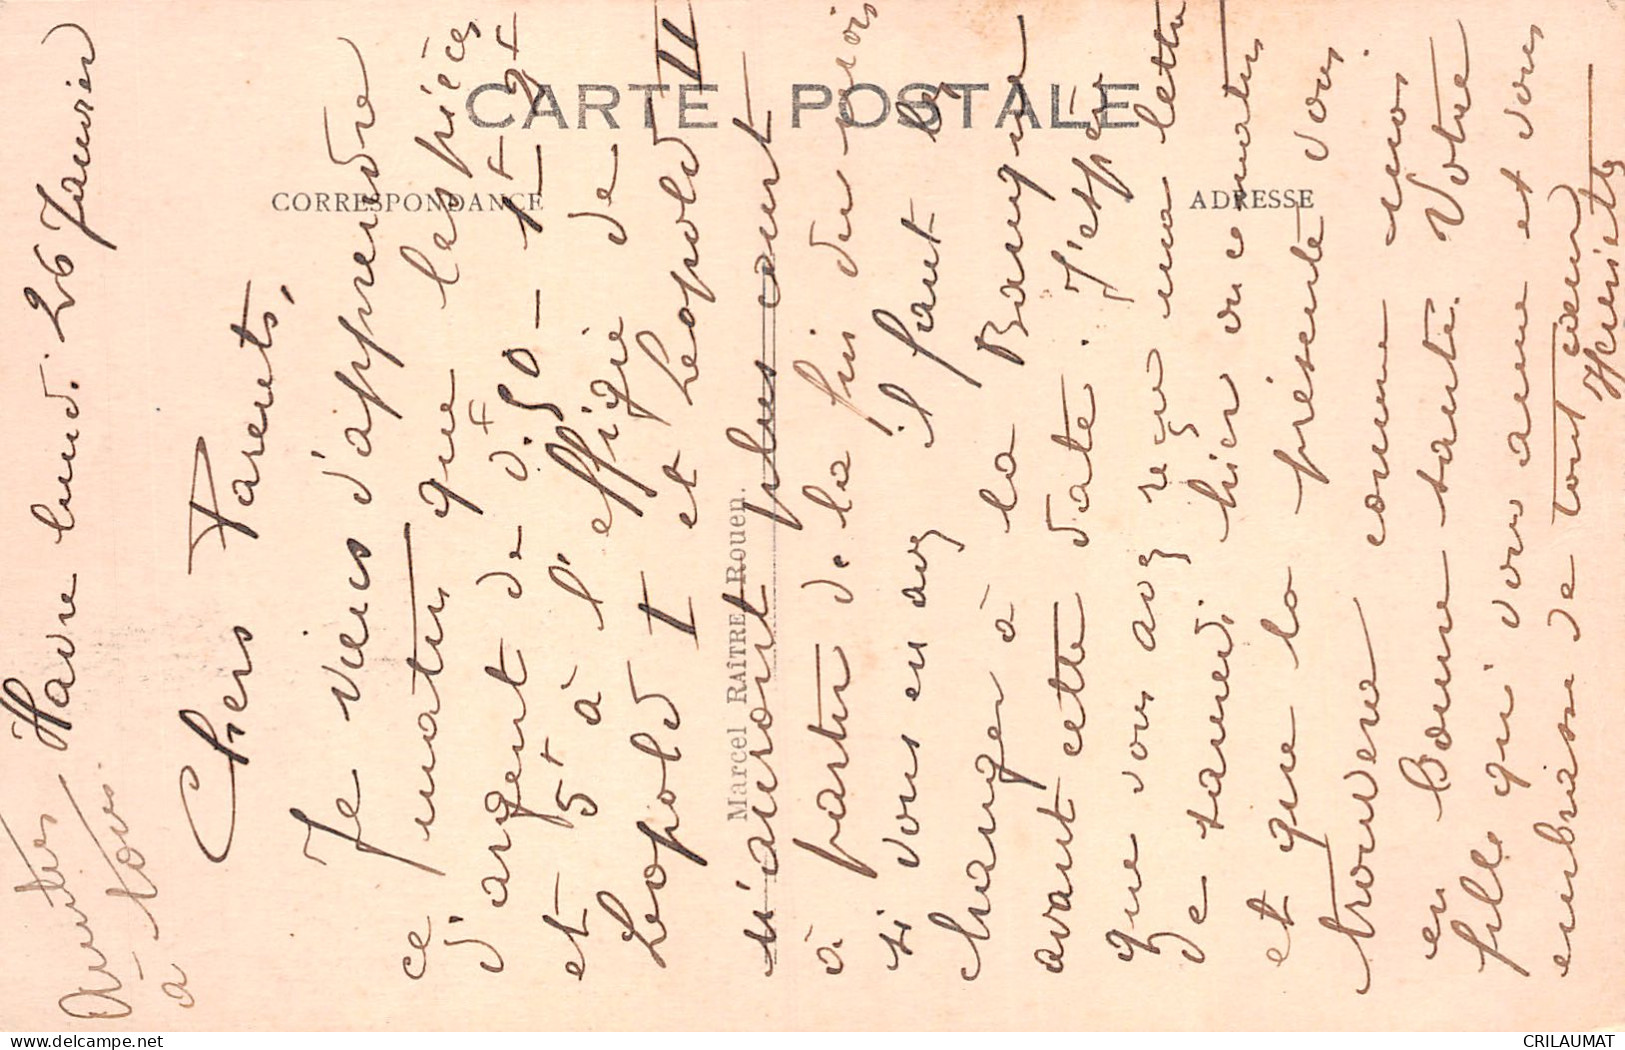 CARTE POSTALE
CORRESPONDANCE
ADRESSE
Marcel RAÎTRE Rouen.
Havre lundi. 26 Janvier
Amitiés
à tous.
Chers Parents,
Je viens d'apprendre
ce matin que les pièces
d'argent de 0f.50 - 1f - 2f
et 5f à l'effigie de
Léopold I et Léopold II
n'auront plus cours
à partir de la fin du mois
si vous en avez il faut les
changer à la Banque
avant cette date. J'espère
que vous avez reçu ma lettre
de samedi hier ou ce matin
et que la présente vous
trouvera comme nous
en bonne santé. Votre
fille qui vous aime et vous
embrasse de tout coeur
Henriette
delcampe.net
CRILAUMAT